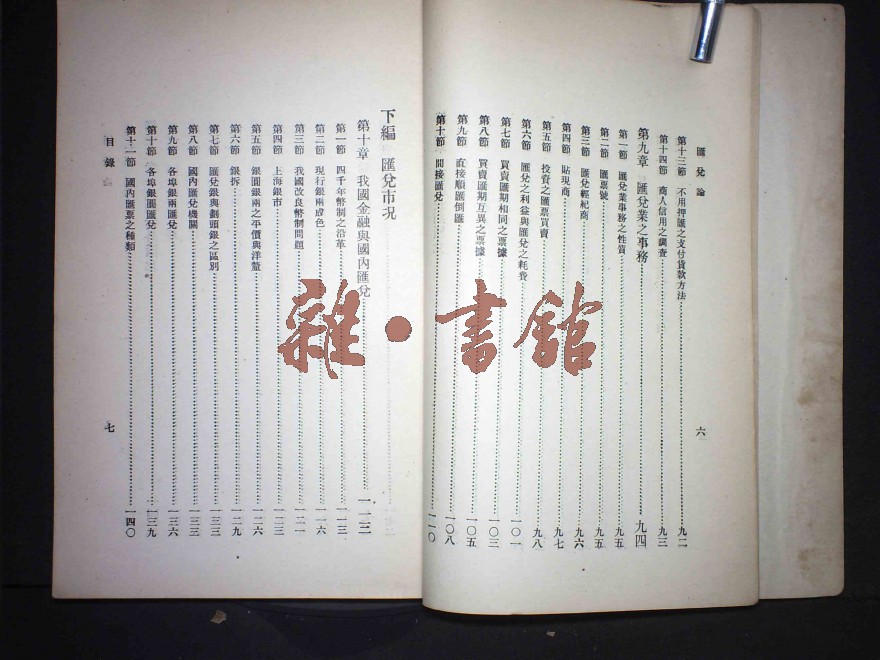 匯兌論
第十三節　不用押匯之支付貨款方法……九二
第十四節　商人信用之調查……九三
第九章　匯兌業之事務……九四
第一節　匯兌業事務之性質……九五
第二節　匯票號……九五
第三節　匯兌經紀商……九六
第四節　貼現商……九七
第五節　投資之匯票買賣……九八
第六節　匯兌之利益與匯兌之耗費……一〇一
第七節　買賣匯期相同之票據……一〇三
第八節　買賣匯期互異之票據……一〇五
第九節　直接順匯倒匯……一〇八
第十節　間接匯兌……一一〇
六
下編　匯兌市況
第十章　我國金融與國內匯兌……一一二
第一節　四千年幣制之沿革……一一三
第二節　現行銀兩成色……一一六
第三節　我國改良幣制問題……一二一
第四節　上海銀市……一二三
第五節　銀圓銀兩之平價與洋釐……一二六
第六節　銀拆……一二九
第七節　匯兌銀與劃頭銀之區別……一三三
第八節　國內匯兌機關……一三三
第九節　各埠銀兩匯兌……一三六
第十節　各埠銀圓匯兌……一三九
第十一節　國內匯票之種類……一四〇
目錄
七
雜・書館